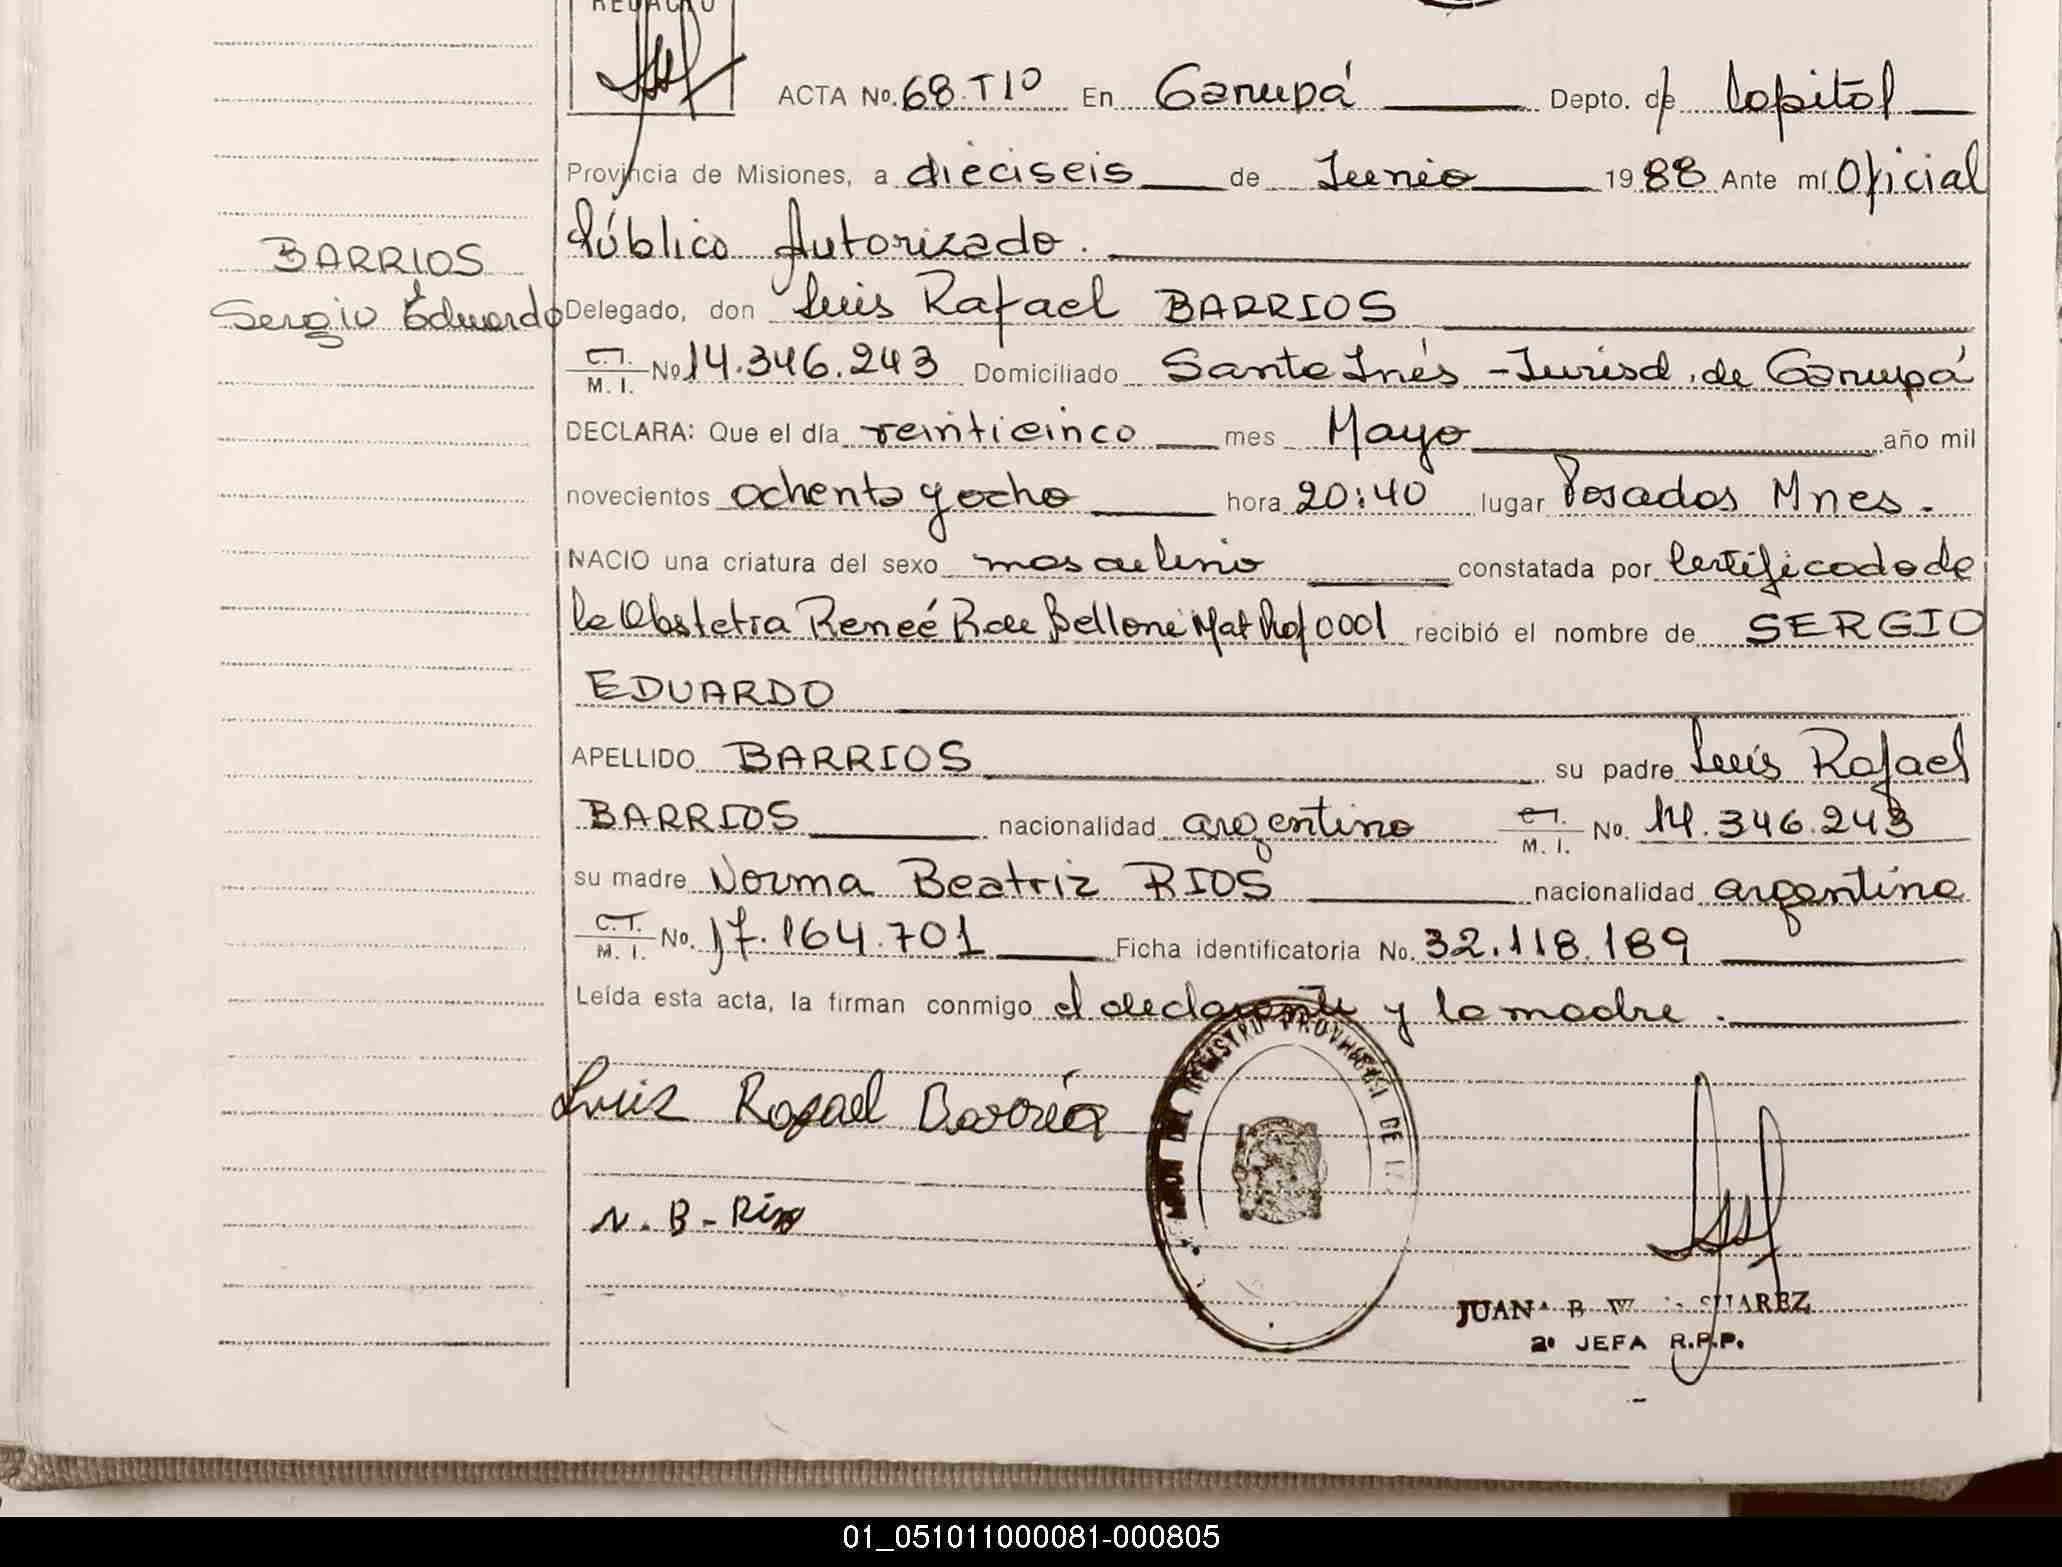 REDACTO
ACTA No. 68 TIO En Garupá Depto. de Capital
Provincia de Misiones, a dieciseis de Junio 1988 Ante mí Oficial
Público Autorizado.
BARRIOS
Sergio Eduardo
Delegado, don Luis Rafael BARRIOS
C.I. M. I. No 14.346.243 Domiciliado Santa Inés - Jurisd. de Garupá
DECLARA: Que el día veinticinco mes Mayo año mil
novecientos ochenta y ocho hora 20:40 lugar Posadas Mnes.
NACIO una criatura del sexo masculino constatada por Certificado de
la Obstetra Reneé R de Belloni Mat Prof 0001 recibió el nombre de SERGIO
EDUARDO
APELLIDO BARRIOS su padre Luis Rafael
BARRIOS nacionalidad argentino C.I. M. I. No. 14.346.243
su madre Norma Beatriz RIOS nacionalidad argentina
C.I. M. I. No. 17.164.701 Ficha identificatoria No. 32.118.189
Leída esta acta, la firman conmigo el declarante y la madre.
REGISTRO PROVINCIAL DE L
Luis Rafael Barrios
N. B - Rios
JUANA B SUAREZ
2º JEFA R.P.P.
01_051011000081-000805